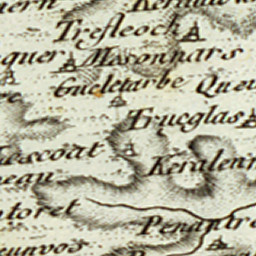 Trefleoch
quer Mesonnars
Gucletarbe Que
Trueglas
escoat
Keralen
eau
ntoret
Penantre
unvos